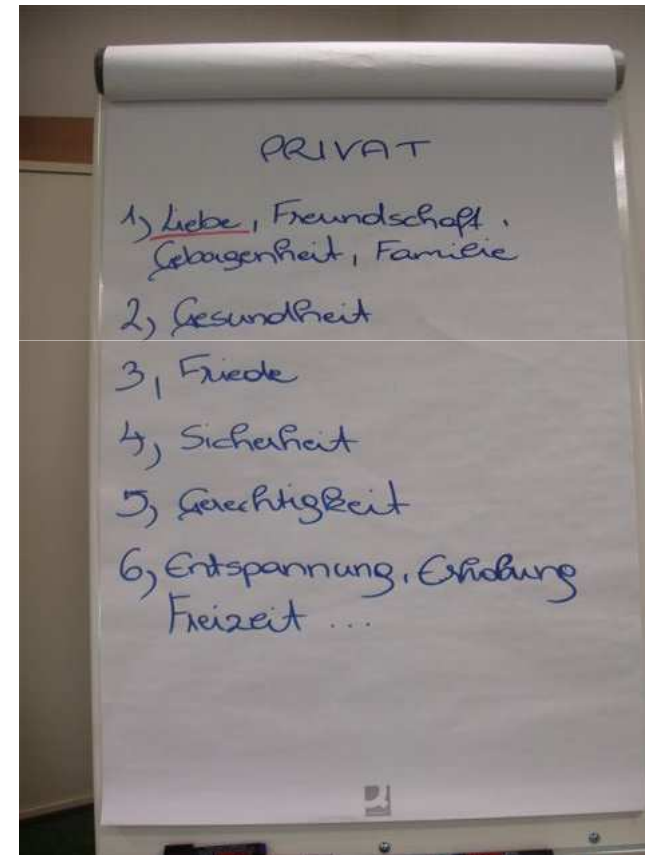 PRIVAT
1) Liebe, Freundschaft,
Geborgenheit, Familie
2) Gesundheit
3) Friede
4) Sicherheit
5) Gerechtigkeit
6) Entspannung, Erholung
Freizeit ...